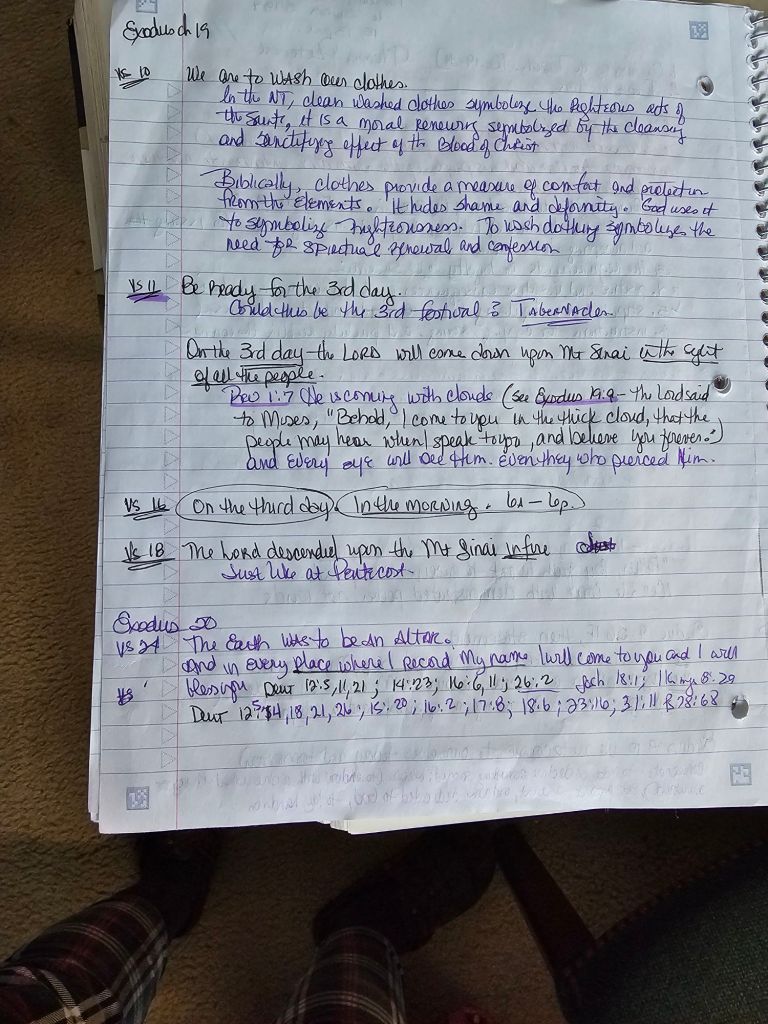 Exodus ch 19
vs 10 We are to wash our clothes.
In the NT, clean washed clothes symbolize the Righteous acts of
the saints, it is a moral renewing symbolized by the cleansing
and sanctifying effect of the Blood of Christ
Biblically, clothes provide a measure of comfort and protection
from the elements. It hides shame and deformity. God uses it
to symbolize righteousness. To wash clothing symbolizes the
need for spiritual renewal and confession
vs 11 Be Ready for the 3rd day.
Could this be the 3rd festival Tabernacles
On the 3rd day the LORD will come down upon Mt Sinai in the sight
of all the people.
Rev 1:7 He is coming with clouds (see Exodus 19:9 - The Lord said
to Moses, "Behold, I come to you in the thick cloud, that the
people may hear when I speak to you, and believe you forever.")
and every eye will see Him. Even they who pierced Him.
vs 16 On the third day. In the morning. 6a - 6p.
vs 18 The Lord descended upon the Mt Sinai in fire
Just like at Pentecost.
Exodus 20
vs 24 The Earth was to be an Altar.
and in every place where I Record My name I will come to you and I will
bless you Deut 12:5, 11, 21; 14:23; 16:6, 11; 26:2 Josh 18:1; 1 Kings 8:29
Deut 12:5, 14, 18, 21, 26; 15:20; 16:2; 17:8; 18:6; 23:16; 31:11 & 28:68